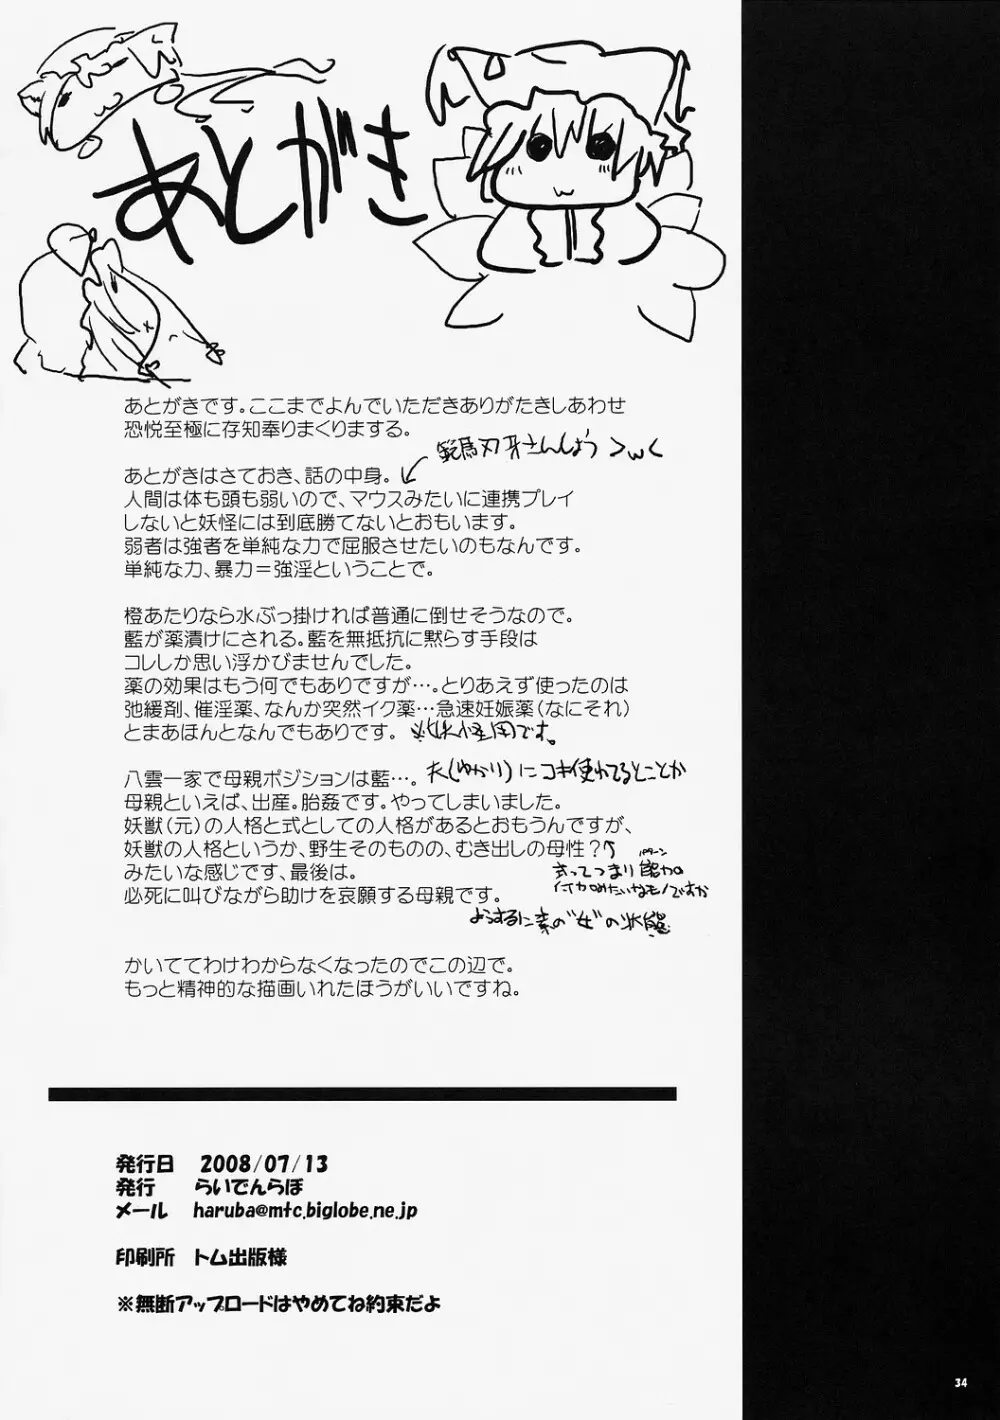 あとがき
あとがきです。ここまでよんでいただきありがたきしあわせ
恐悦至極に存知奉りまくりまする。
範馬刃牙さんしょう >w<
あとがきはさておき、話の中身。
人間は体も頭も弱いので、マウスみたいに連携プレイ
しないと妖怪には到底勝てないとおもいます。
弱者は強者を単純な力で屈服させたいのもなんです。
単純な力、暴力＝強淫ということで。
橙あたりなら水ぶっ掛ければ普通に倒せそうなので。
藍が薬漬けにされる。藍を無抵抗に黙らす手段は
コレしか思い浮かびませんでした。
薬の効果はもう何でもありですが…。とりあえず使ったのは
弛緩剤、催淫薬、なんか突然イク薬…急速妊娠薬（なにそれ）
とまあほんとなんでもありです。 ※妖怪用です。
八雲一家で母親ポジションは藍…。 夫(ゆかり)にコキ使われてるとことか
母親といえば、出産。胎姦です。やってしまいました。
妖獣（元）の人格と式としての人格があるとおもうんですが、
妖獣の人格というか、野生そのものの、むき出しの母性？
みたいな感じです、最後は。
式ってつまり能力の
パターン
付加みたいなモノですか
必死に叫びながら助けを哀願する母親です。
ようするに素の"女"の状態
かいててわけわからなくなったのでこの辺で。
もっと精神的な描画いれたほうがいいですね。
発行日 2008/07/13
発行 らいでんらぼ
メール haruba@mtc.biglobe.ne.jp
印刷所 トム出版様
※無断アップロードはやめてね約束だよ
34